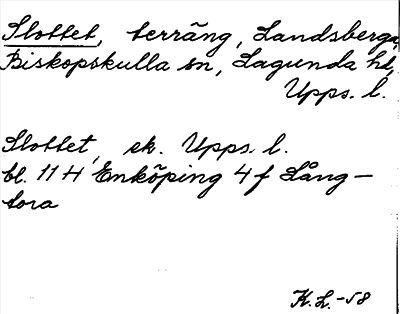 Slottet, terräng, Landsberga,
Biskopskulla sn, Lagunda hd,
Upps. l.
Slottet, ek. Upps. l.
bl. 11 H Enköping 4 f Lång-
tora
K.L.-58